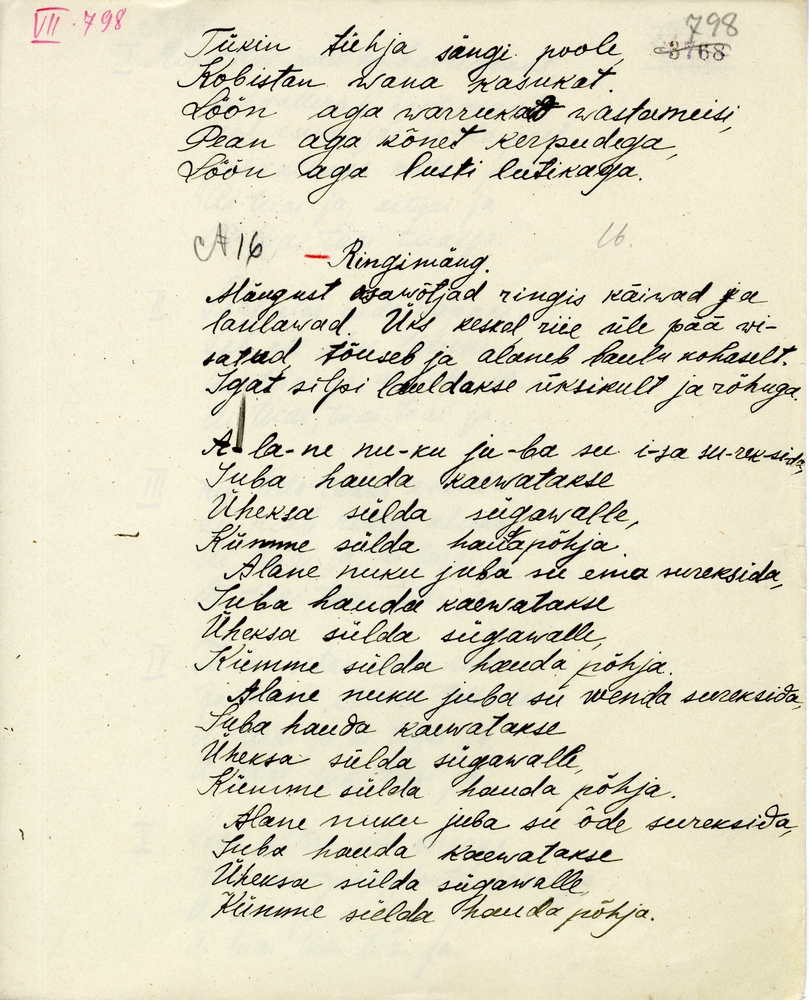 VII. 798
798
3768
Tükin tühja sängi poole,
Kobistan wana kasukat.
Löön aga warrukad wastameisi,
Pean aga kõnet kerpudega,
Löön aga lusti lutikaga.
№ 16 – Ringimäng. 16.
Mängust osawõtjad ringis käiwad ja
laulawad. Üks keskel, riie üle pää wi-
satud, tõuseb ja alaneb laulu kohaselt.
Igat silpi lauldakse üksikult ja rõhuga.
A-la-ne nu-ku ju-ba su i-sa su-rek-sida,
Juba hauda kaewatakse
Üheksa sülda sügawalle,
Kümme sülda hauta põhja.
Alane nuku juba su ema sureksida,
Juba hauda kaewatakse
Üheksa sülda sügawalle,
Kümme sülda hauda põhja.
Alane nuku juba su wenda sureksida,
Juba hauda kaewatakse
Üheksa sülda sügawalle,
Kümme sülda hauda põhja.
Alane nuku juba su õde sureksida,
Juba hauda kaewatakse
Üheksa sülda sügawalle,
Kümme sülda hauda põhja.